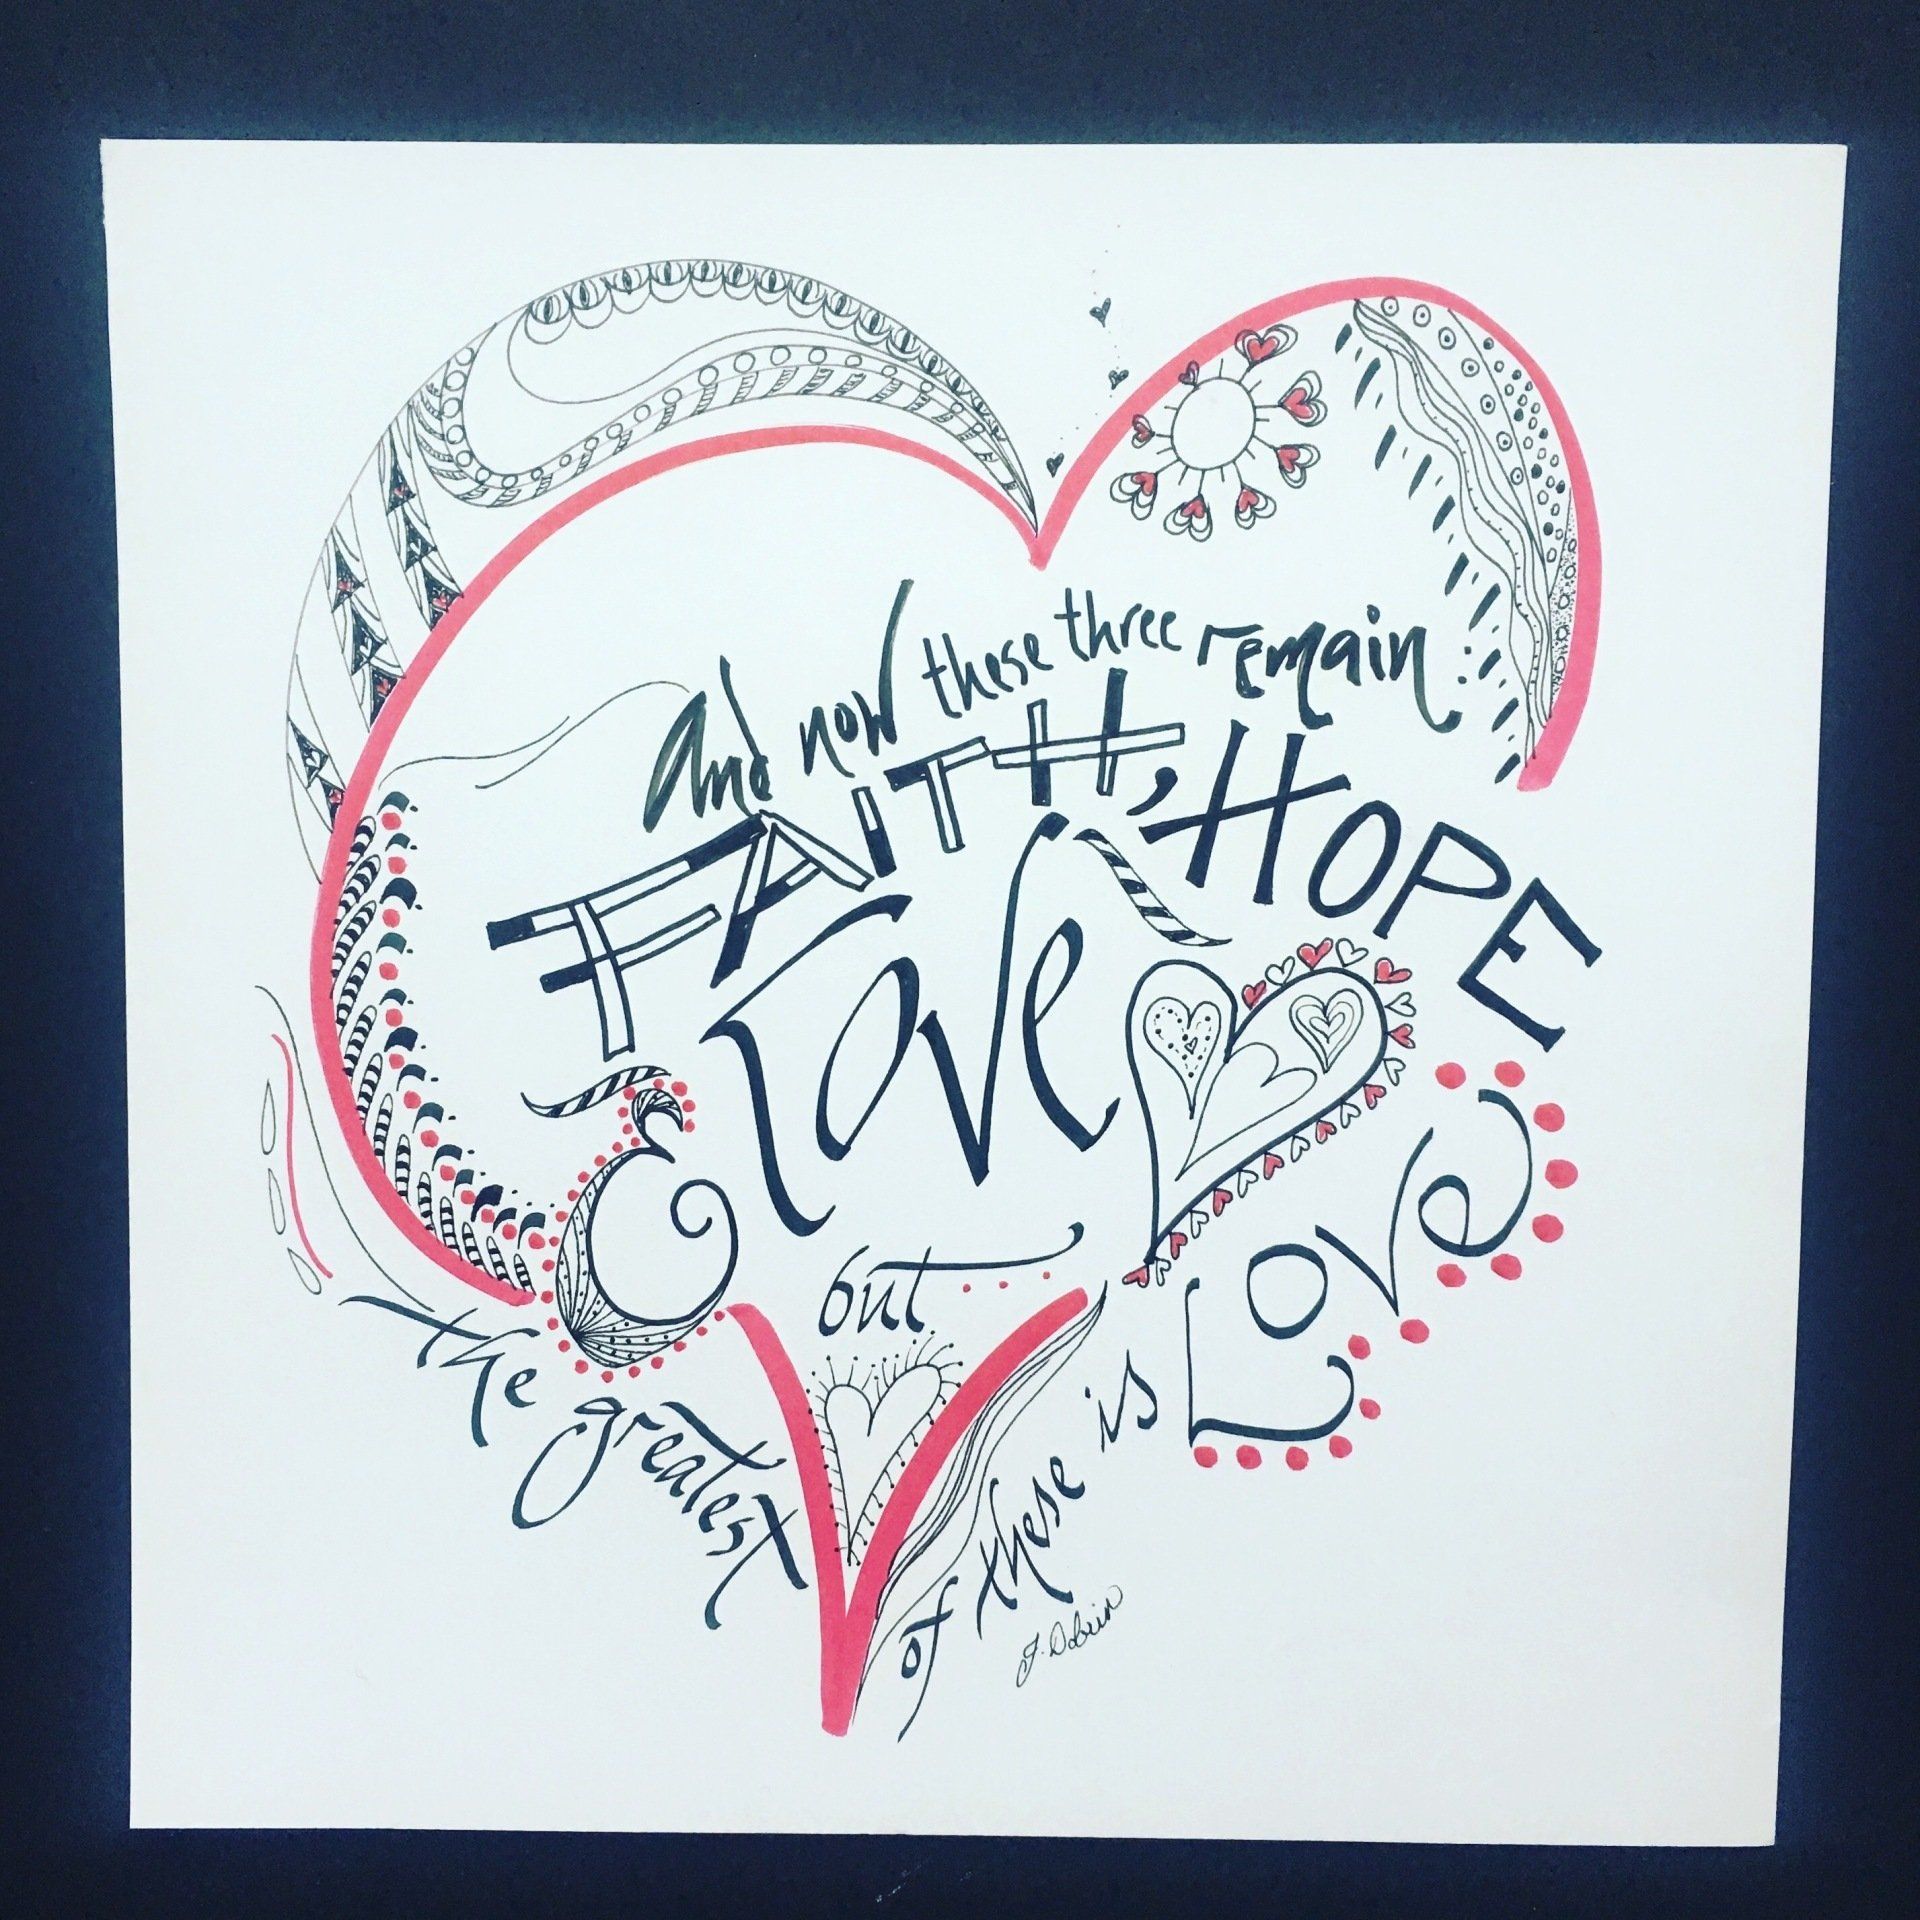 and now these three remain:
FAITH, HOPE
& Love
but
the greatest
of these is Love
J. Dobrin